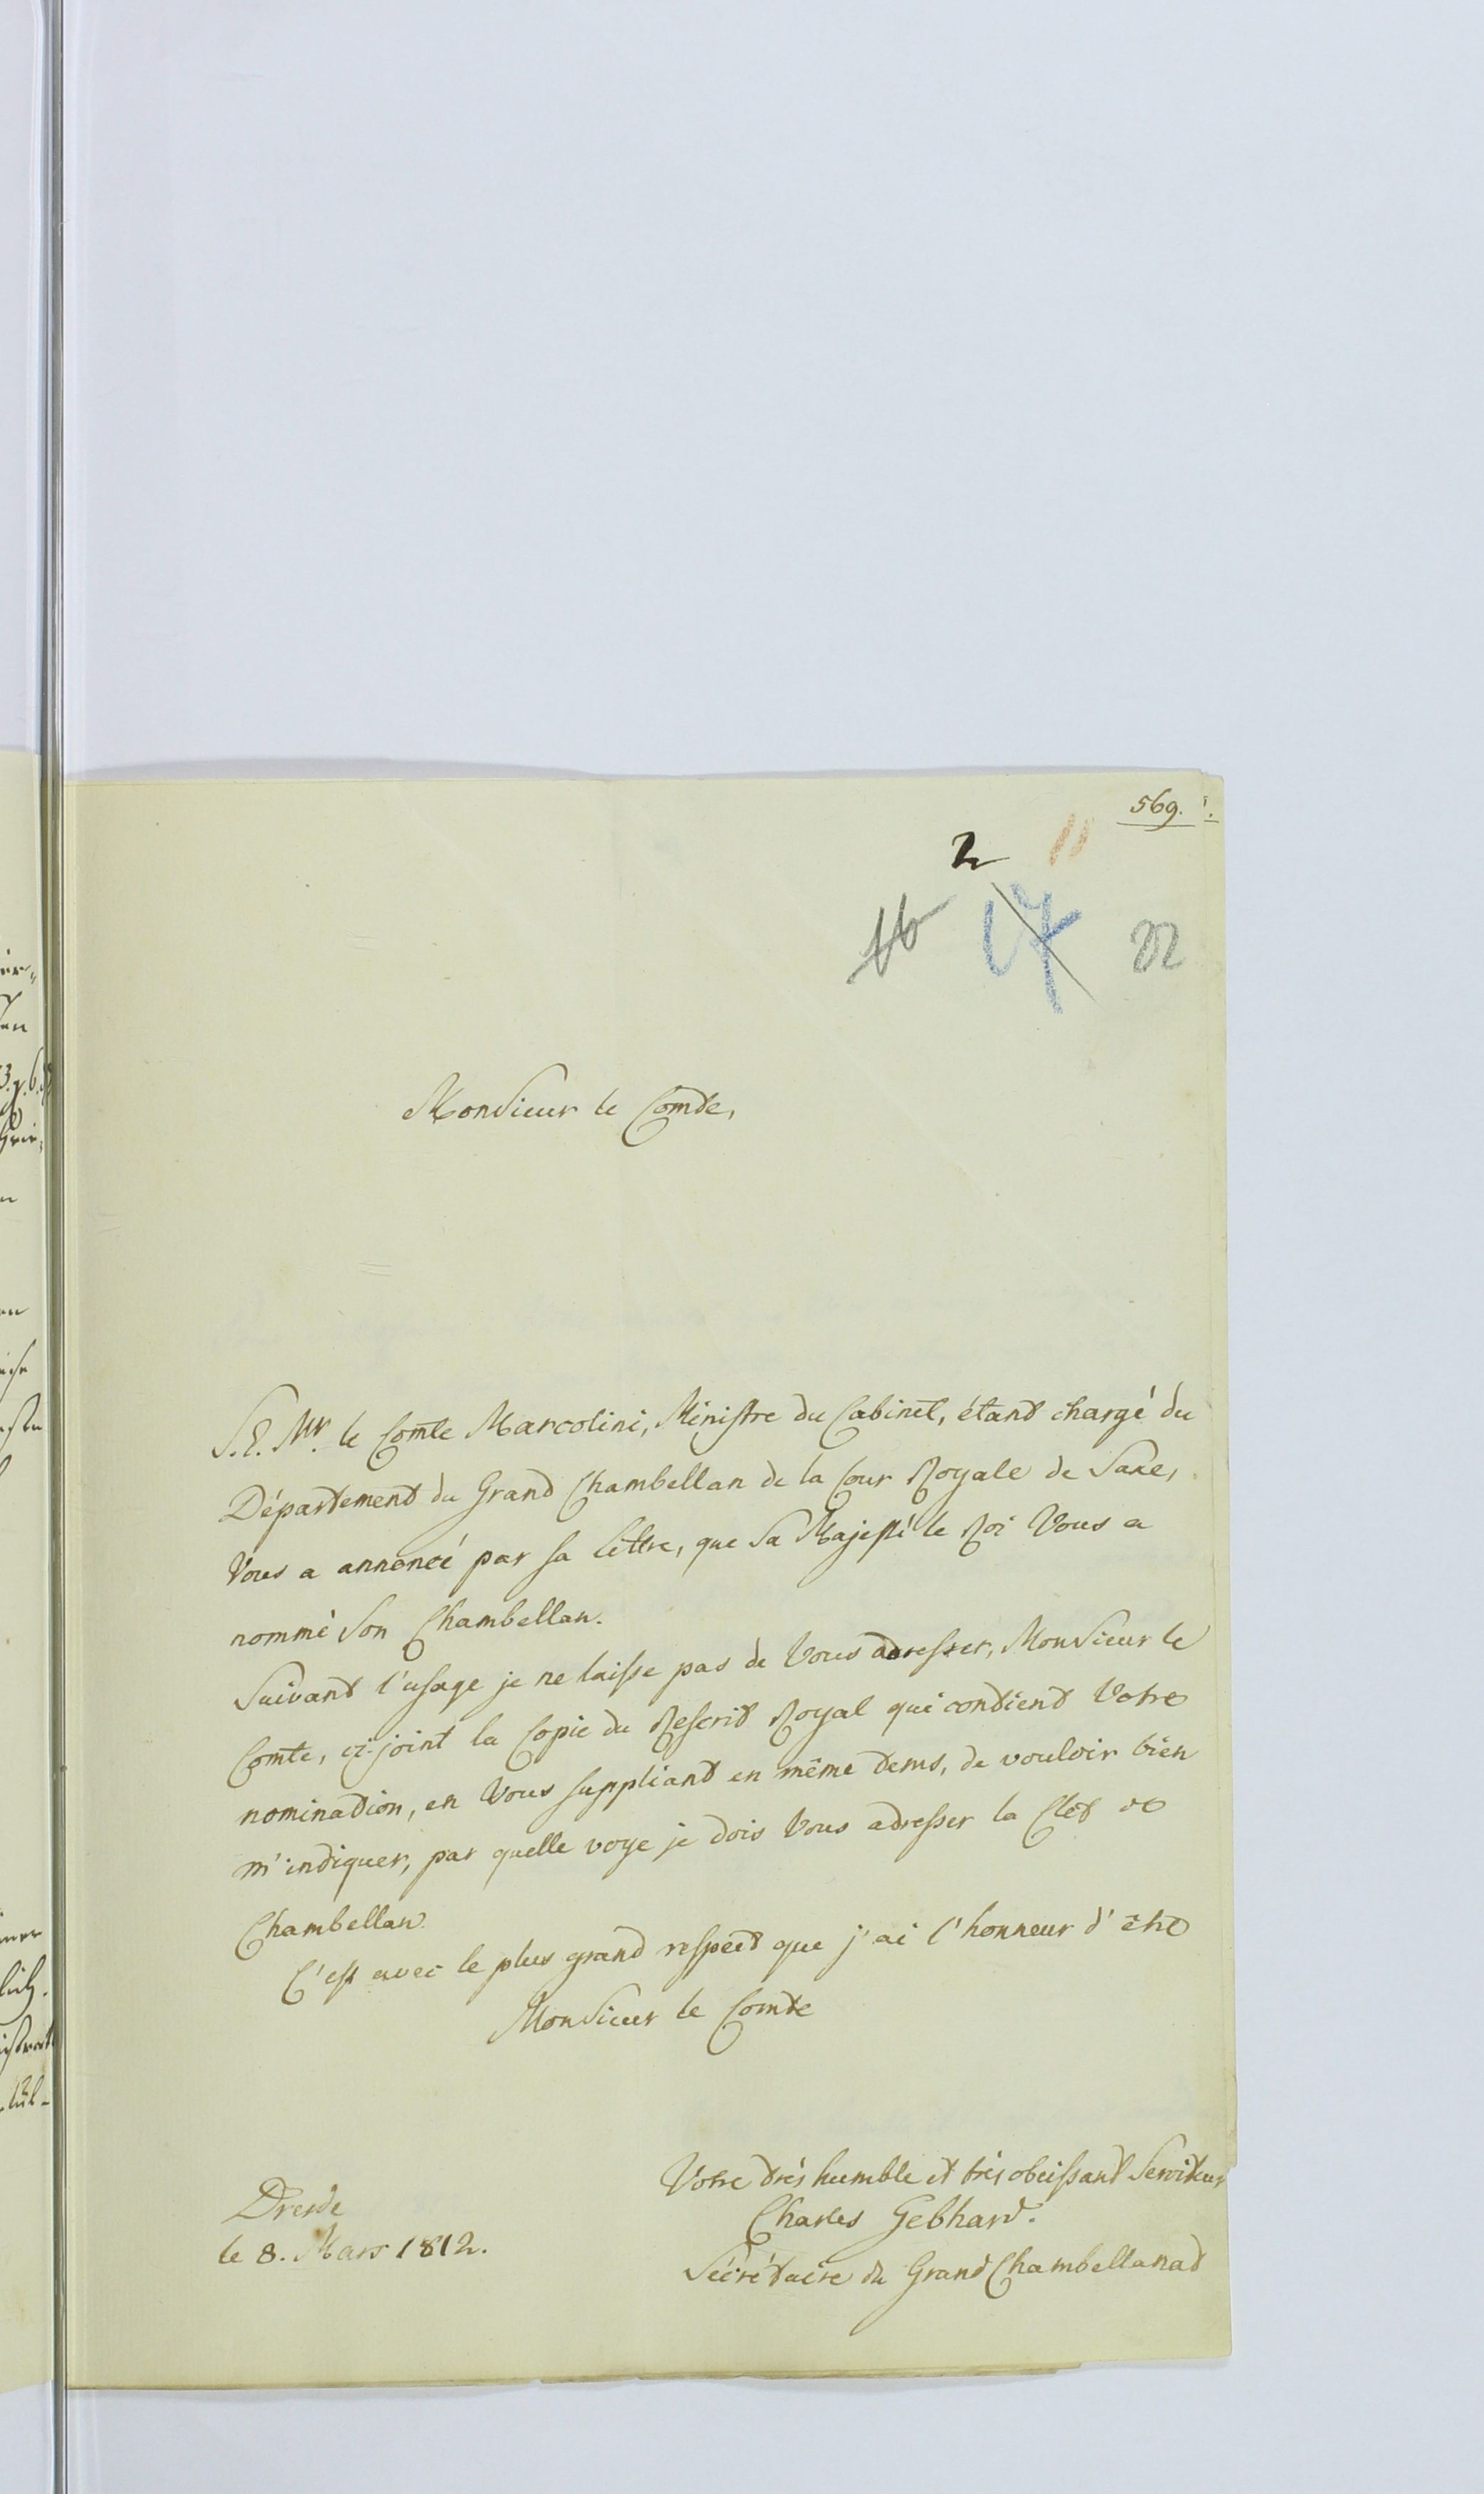 569. 1.
2 11
16 17 22
Monsieur le Comte,
S. E. Mr. le Comte Marcolini, Ministre du Cabinet, étant chargé du
Département du Grand Chambellan de la Cour Royale de Saxe,
Vous a annoncé par sa lettre, que Sa Majesté le Roi Vous a
nommé Son Chambellan.
Suivant l'usage je ne laisse pas de Vous adresser, Monsieur le
Comte, ci-joint la Copie du Rescrit Royal qui contient Votre
nomination, en Vous suppliant en même tems, de vouloir bien
m'indiquer, par quelle voye je dois Vous adresser la Clef de
Chambellan.
C'est avec le plus grand respect que j'ai l'honneur d'être
Monsieur le Comte
Votre très humble et très obeissant Serviteur
Charles Gebhard.
Sécrétaire du Grand Chambellanat
Dresde
le 8. Mars 1812.